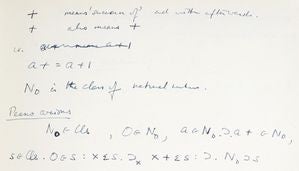 + means 'successor of' and written afterwards.
+ also means +
i.e.
a + = a + 1
N₀ is the class of natural numbers.
Peano axioms
N₀ ε Cls , 0 ε N₀ , a ε N₀ . ⊃ . a + ε N₀ ,
s ε Cls . 0 ε s : x ε s . ⊃ₓ x + ε s : ⊃ . N₀ ⊃ s